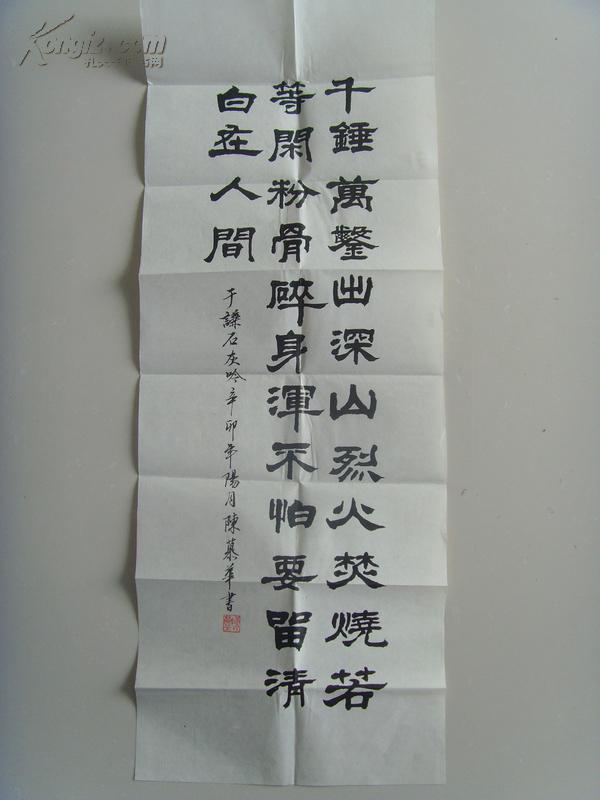 千錘萬鑿出深山烈火焚燒若
等閑粉骨碎身渾不怕要留清
白在人間
于謙石灰吟辛卯年陽月陳慕華書
Kongfz.com